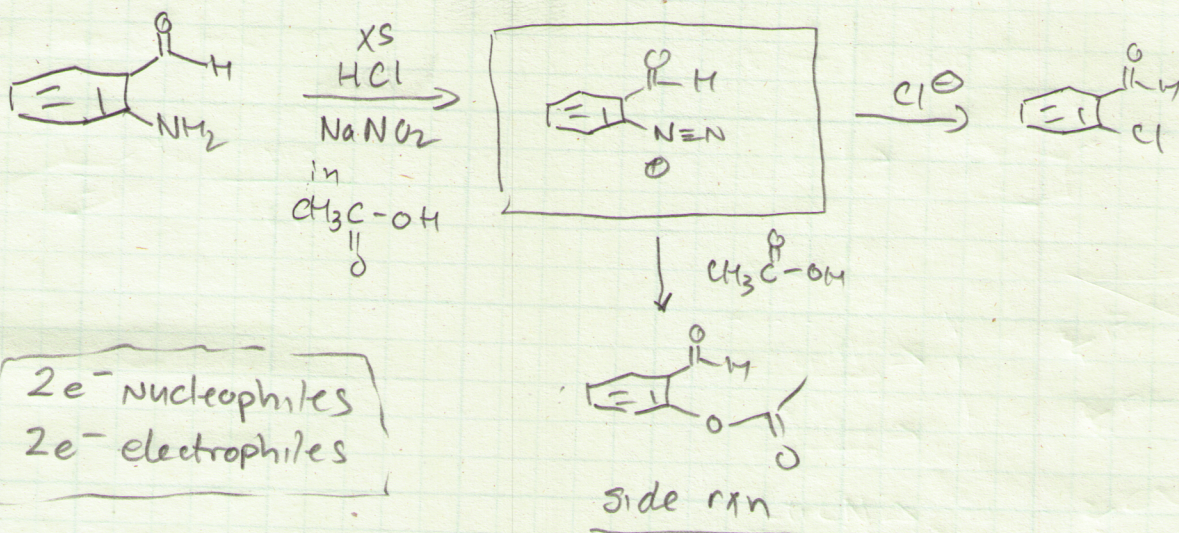 O
H
NH2
XS
HCl
NaNO2
in
CH3C-OH
O
O
H
N≡N
⊕
Cl⊖
O
H
Cl
O
CH3C-OH
O
H
O
O
2e⁻ Nucleophiles
2e⁻ electrophiles
side rxn